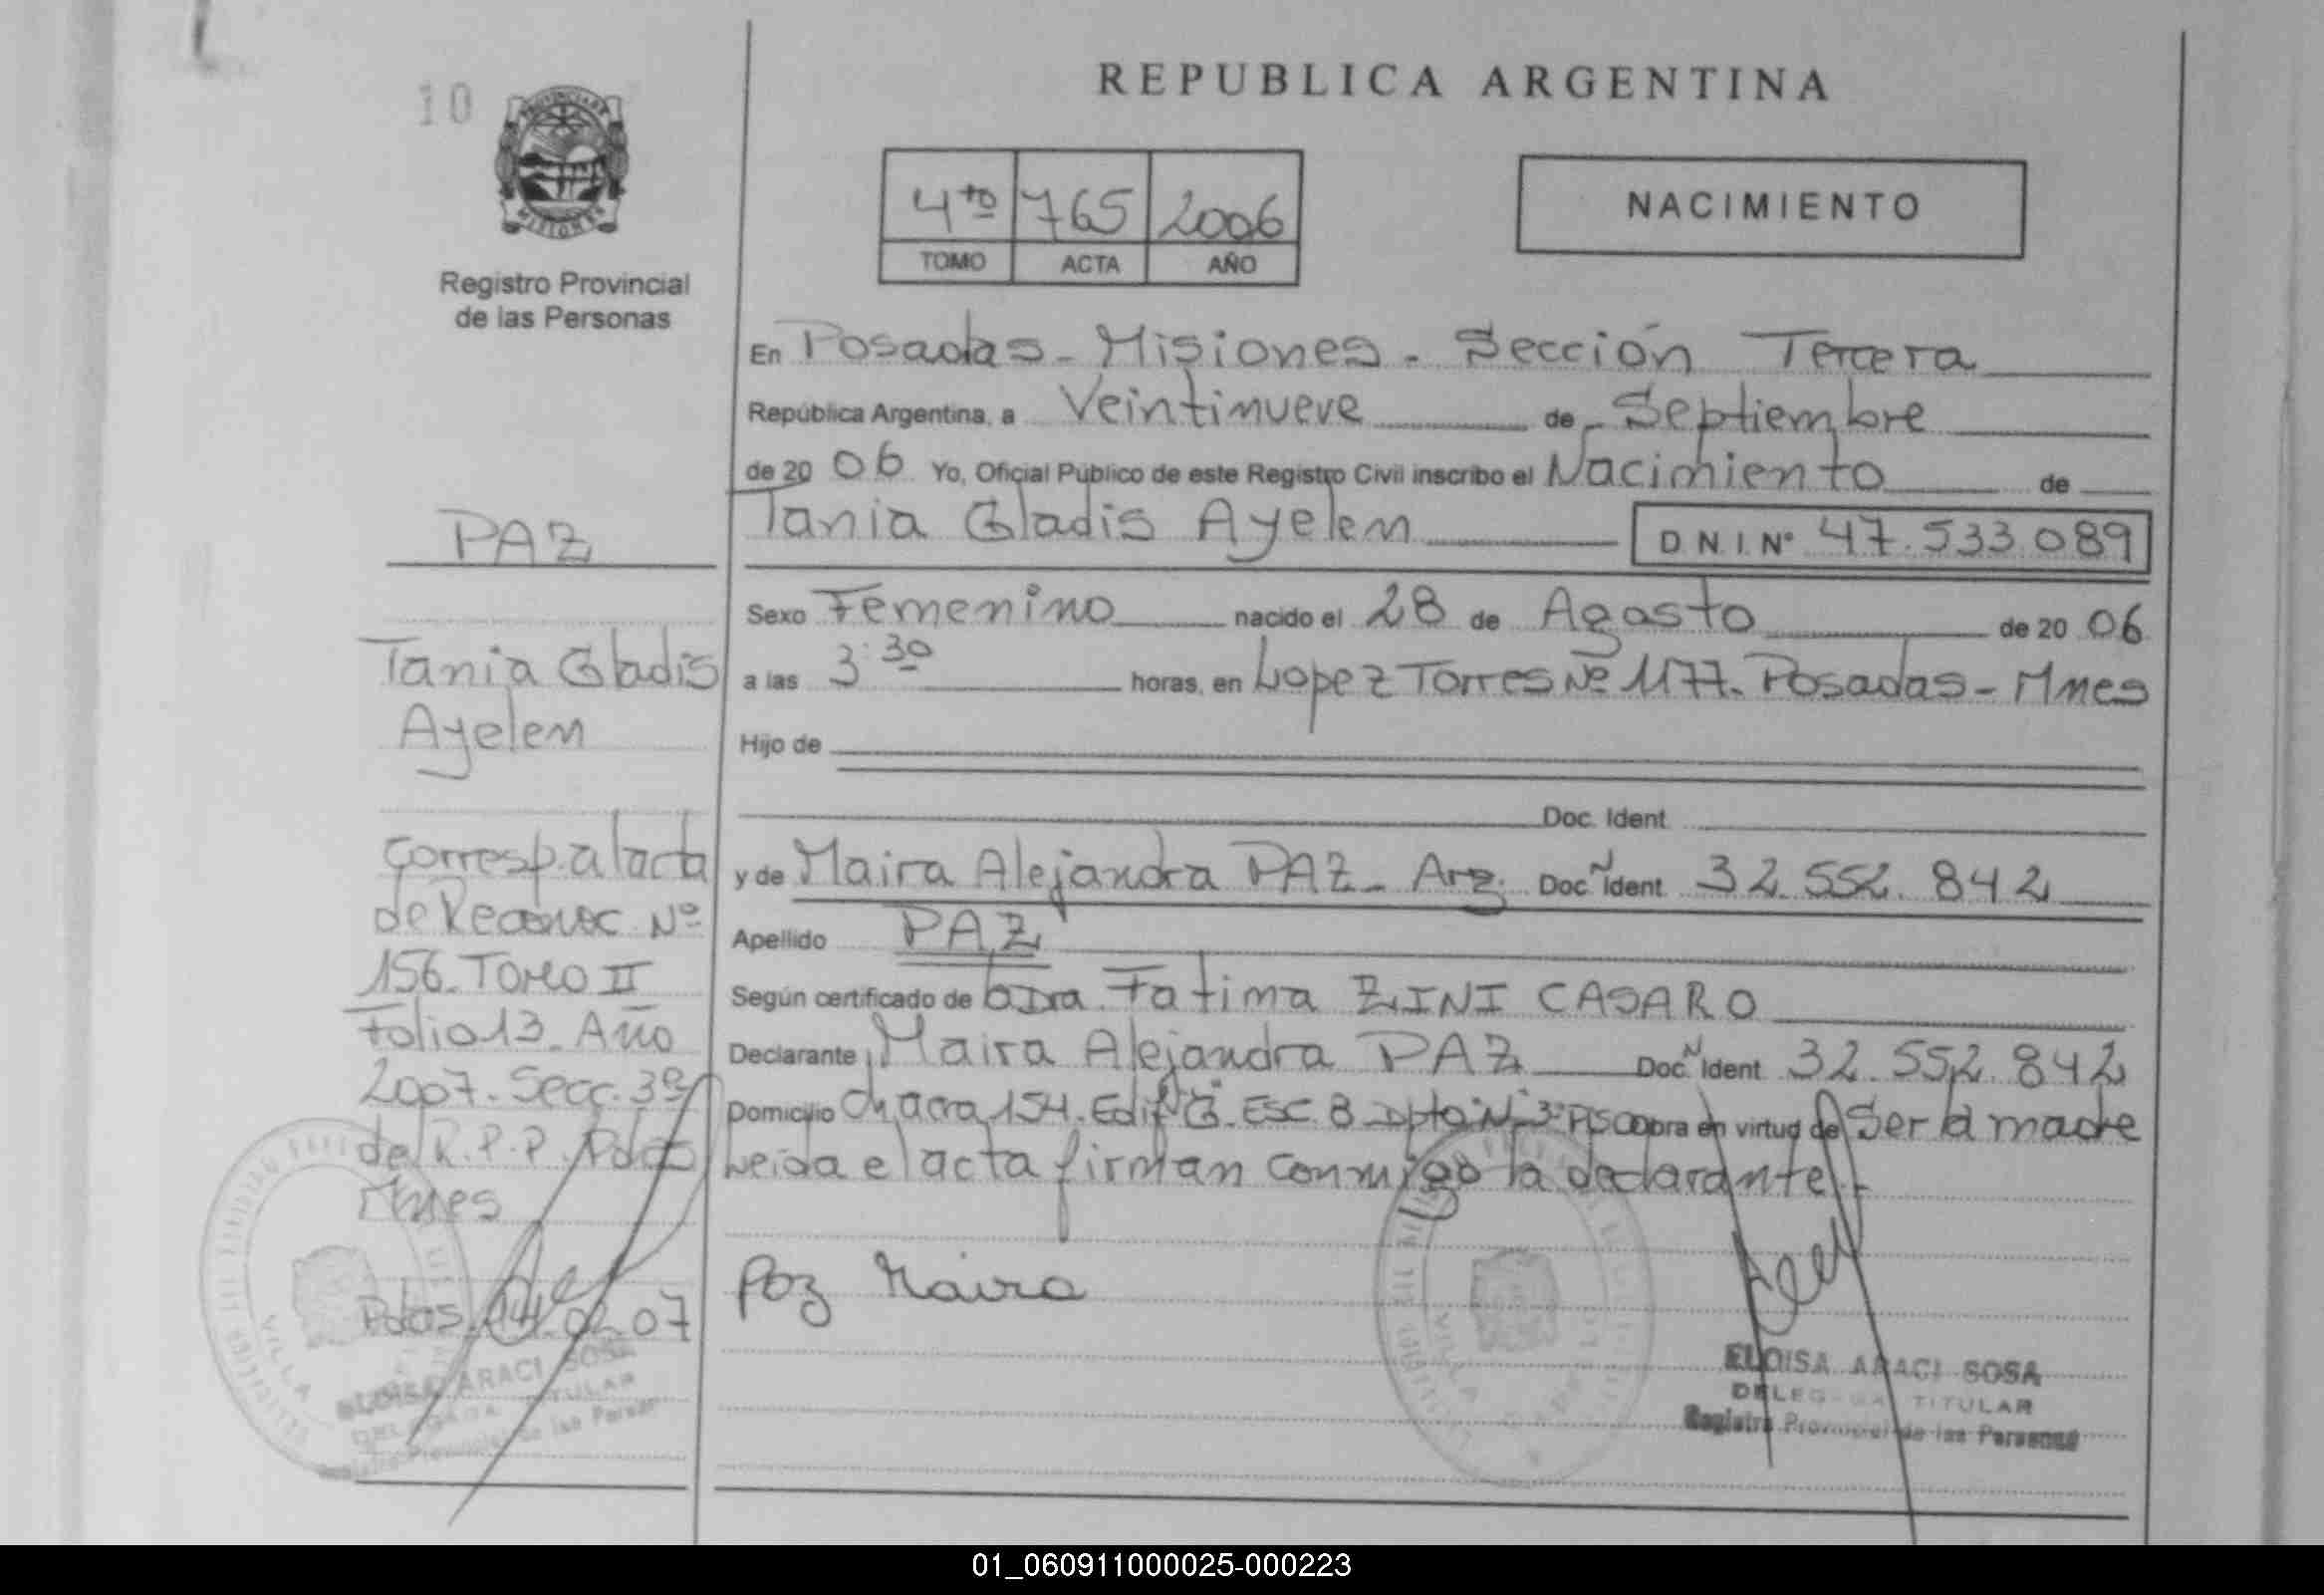 REPUBLICA ARGENTINA
10
PROVINCIA DE
MISIONES
Registro Provincial
de las Personas
4to 765 2006
TOMO ACTA AÑO
NACIMIENTO
En Posadas - Misiones - Sección Tercera
República Argentina, a Veintinueve de Septiembre
de 20 06 Yo, Oficial Público de este Registro Civil inscribo el Nacimiento de
Tania Gladis Ayelen D N I. N° 47.533.089
Sexo Femenino nacido el 28 de Agosto de 20 06
a las 3:30 horas, en Lopez Torres Nº 1177. Posadas - Mnes
Hijo de
Doc. Ident
y de Maira Alejandra PAZ - Arg. Doc. Ident 32.552.842
Apellido PAZ
Según certificado de Dra. Fatima ZINI CASARO
Declarante Maira Alejandra PAZ Doc. Ident 32.552.842
Domicilio Chacra 154. Edif "G". Esc. 8 Dpto "N" 3º Piso obra en virtud de Ser la madre
Leida el acta firman conmigo la declarante.-
Paz Maira
ELOISA ARACI SOSA
DELEGADA TITULAR
Registro Provincial de las Personas
PAZ
Tania Gladis
Ayelen
Corresp. al acta
de Reconoc Nº
156. TOMO II
Folio 13. Año
2007. Secc. 3ª
del R.P.P. Pdas
Mnes
Pdas. 14.02.07
VILLA
ELOISA ARACI SOSA
DELEGADA TITULAR
Registro Provincial de las Personas
01_060911000025-000223